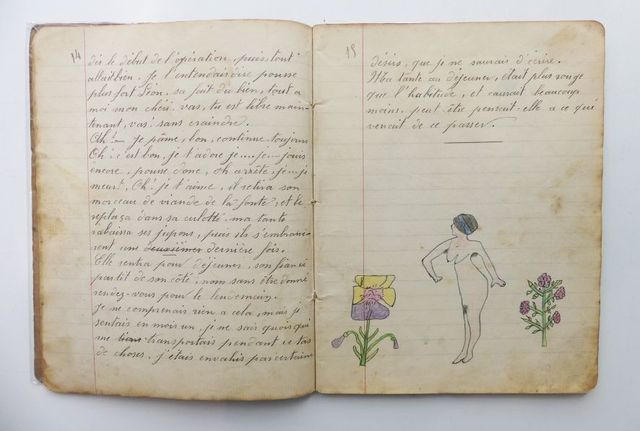 14
dès le début de l'opération, puis tout
alla bien. Je l'entendais dire pousse
plus fort Léon, sa fait du bien, tout a
moi mon chéri, vas, tu est libre main-
tenant, vas! sans craindre.
Ah!— je pâme, bon, continue toujours
Oh! c'est bon, je t'adore je.... je.... jouis
encore, pousse donc, oh arrête, je... je
meurt, Oh! je t'aime, il retira son
morceau de viande de la fente, et le
replaça dans sa culotte. ma tante
rabaissa ses jupons, puis ils s'embrassè-
rent une deuxièmen dernière fois.
Elle rentra pour déjeuner, son fiancé
partit de son côté, non sans être donné
rendez-vous pour le lendemain.
Je ne comprenais rien a cela, mais je
sentais en moi un je ne sais quoi qui
me transportais pendant ce tas
de choses, j'étais envahis par certains
15
désirs, que je ne saurais d'écrire.
Ma tante au déjeuner, était plus rouge
que l'habitude, et causait beaucoup
moins, peut être pensait-elle a ce qui
venait de ce passer.